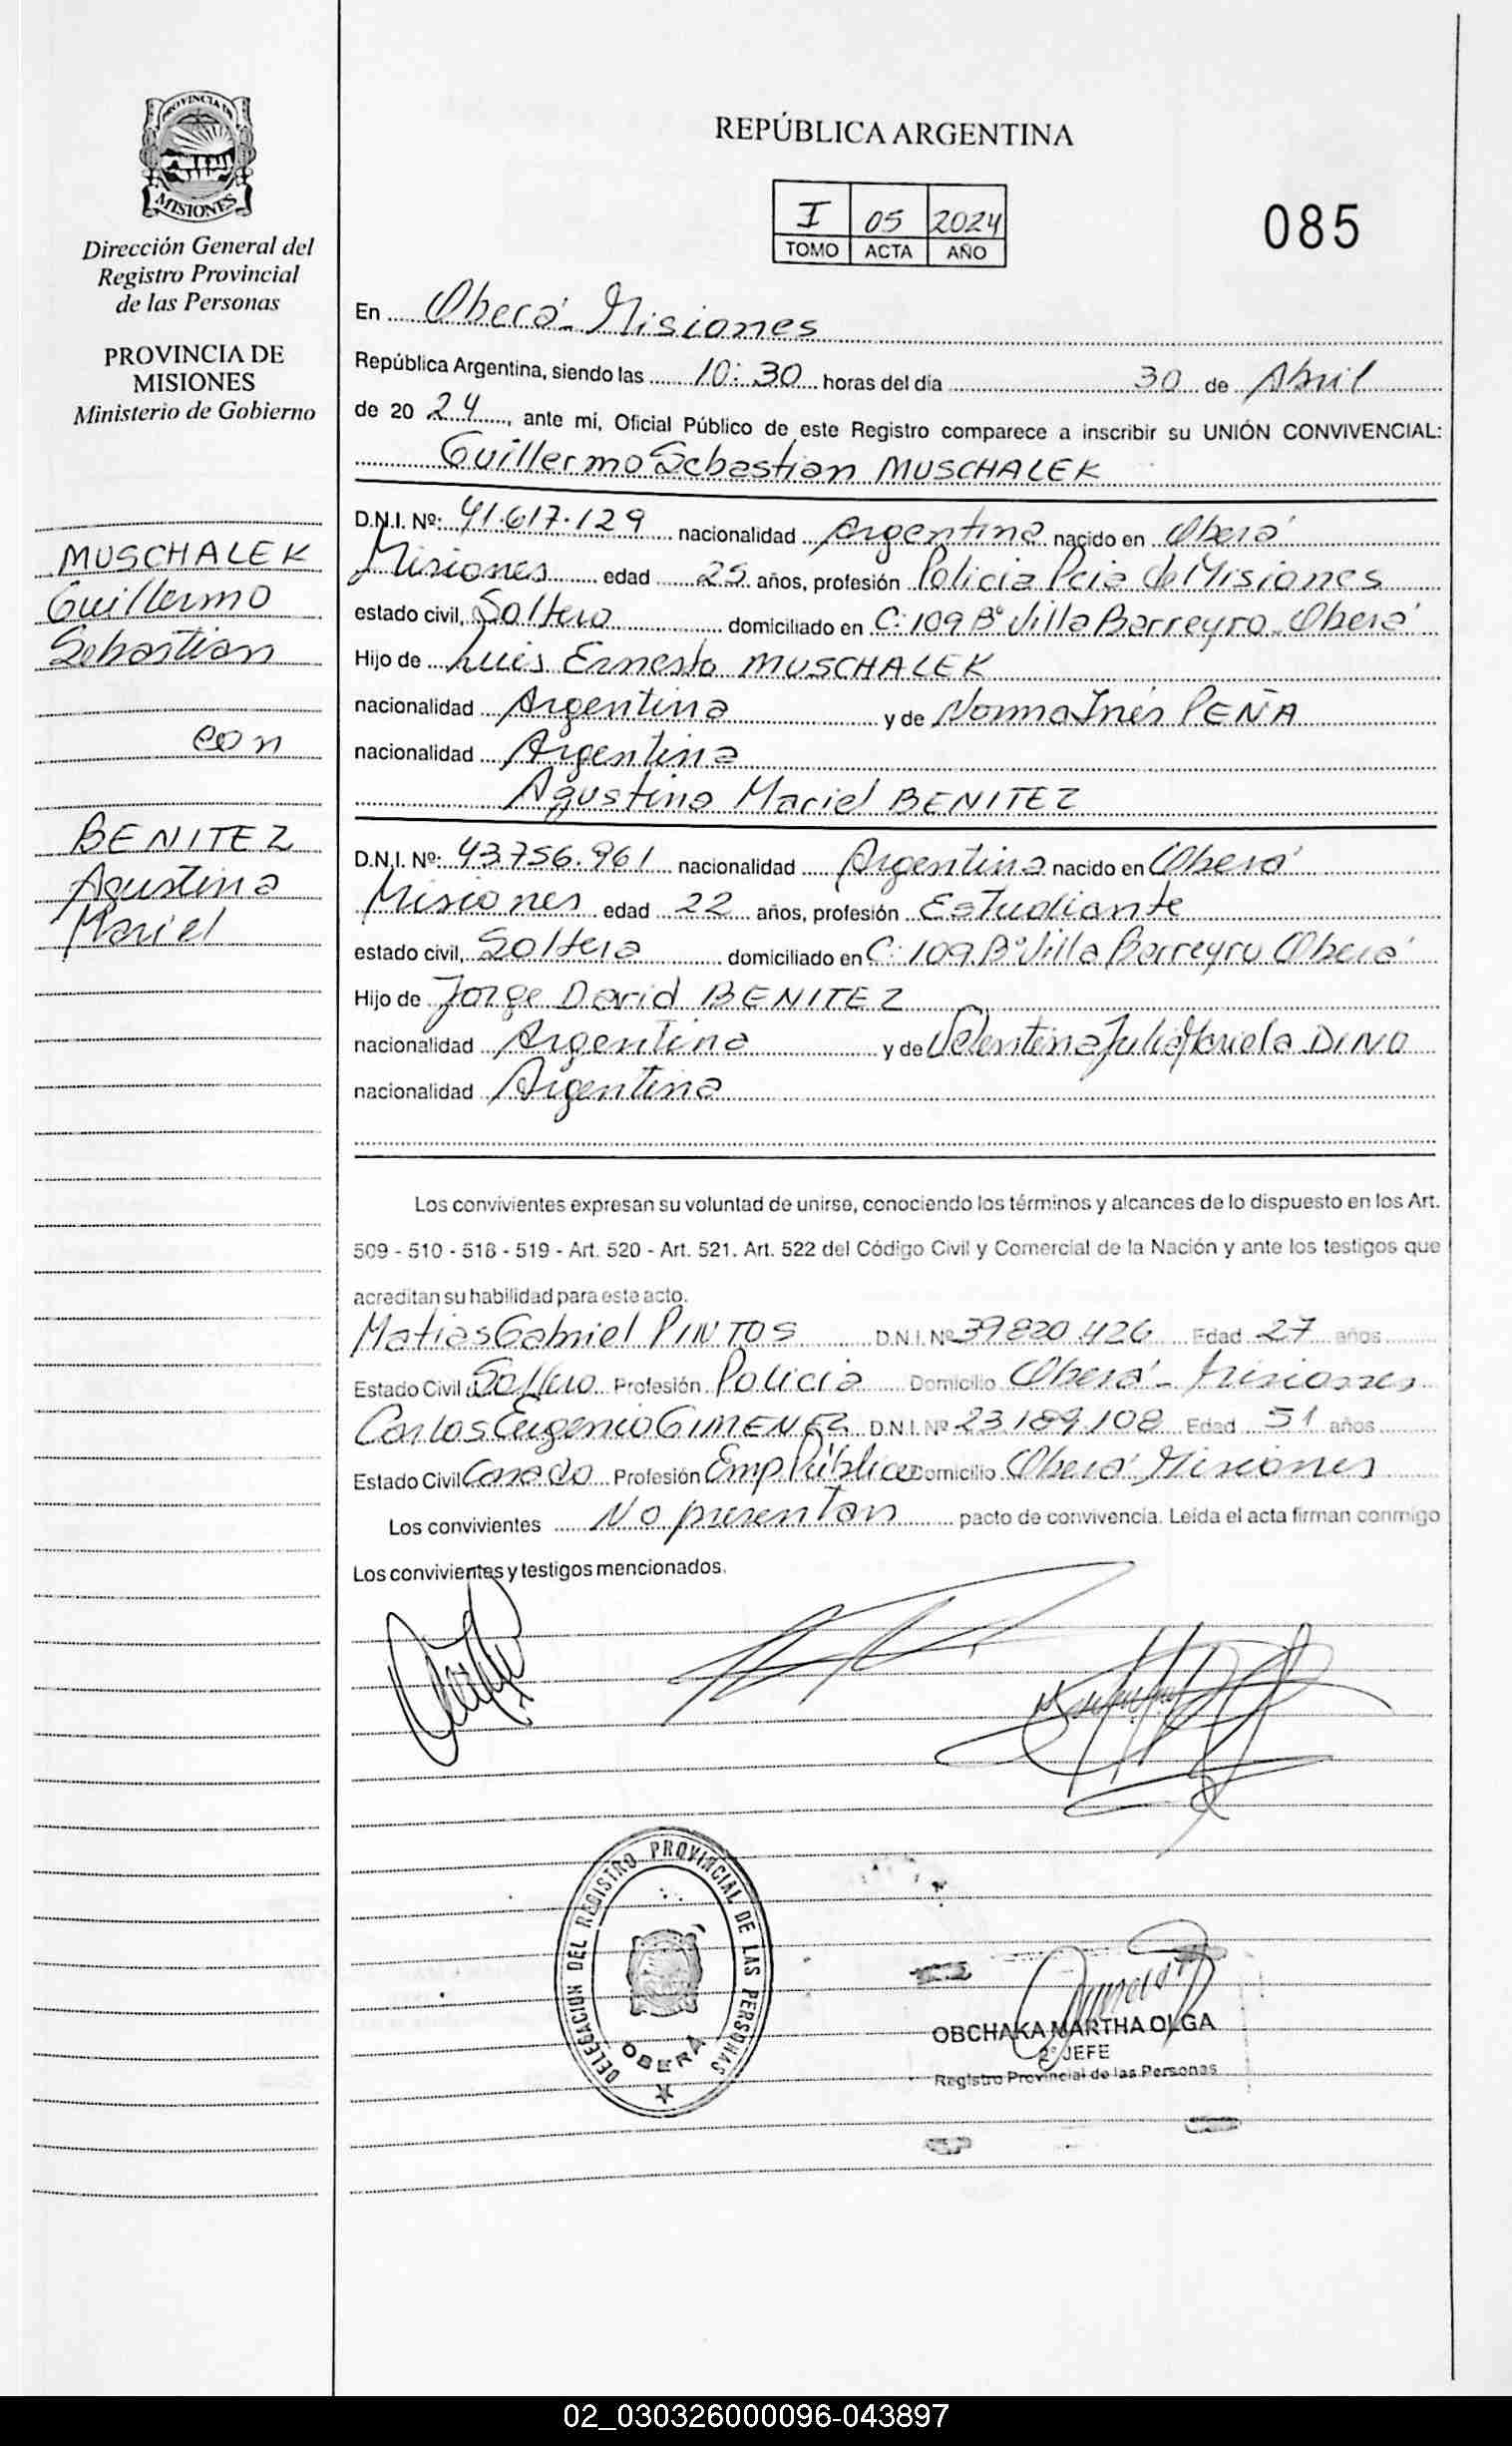 PROVINCIA DE
MISIONES
Dirección General del
Registro Provincial
de las Personas
PROVINCIA DE
MISIONES
Ministerio de Gobierno
MUSCHALEK
Guillermo
Sebastian
con
BENITEZ
Agustina
Mariel
REPÚBLICA ARGENTINA
I 05 2024
TOMO ACTA AÑO
085
En Oberá - Misiones
República Argentina, siendo las 10:30 horas del día 30 de Abril
de 20 24, ante mí, Oficial Público de este Registro comparece a inscribir su UNIÓN CONVIVENCIAL:
Guillermo Sebastian MUSCHALEK
D.N.I. Nº: 41.617.129 nacionalidad Argentina nacido en Oberá
Misiones edad 25 años, profesión Policia Pcia de Misiones
estado civil, Soltero domiciliado en C: 109 Bº Villa Barreyro - Oberá
Hijo de Luis Ernesto MUSCHALEK
nacionalidad Argentina y de Norma Inés PEÑA
nacionalidad Argentina
Agustina Mariel BENITEZ
D.N.I. Nº: 43.756.961 nacionalidad Argentina nacido en Oberá
Misiones edad 22 años, profesión Estudiante
estado civil, Soltera domiciliado en C: 109 Bº Villa Barreyro Oberá
Hijo de Jorge David BENITEZ
nacionalidad Argentina y de Valentina Julia Mariela DINO
nacionalidad Argentina
Los convivientes expresan su voluntad de unirse, conociendo los términos y alcances de lo dispuesto en los Art.
509 - 510 - 518 - 519 - Art. 520 - Art. 521. Art. 522 del Código Civil y Comercial de la Nación y ante los testigos que
acreditan su habilidad para este acto.
Matias Gabriel PINTOS D.N.I. Nº 39820426 Edad 27 años
Estado Civil Soltero Profesión Policia Domicilio Oberá - Misiones
Carlos Eugenio GIMENEZ D.N.I. Nº 23.189.108 Edad 51 años
Estado Civil Casado Profesión Emp Público Domicilio Oberá Misiones
Los convivientes No presentan pacto de convivencia. Leída el acta firman conmigo
Los convivientes y testigos mencionados.
DELEGACION DEL REGISTRO PROVINCIAL DE LAS PERSONAS
OBERA
OBCHAKA MARTHA OLGA
2º JEFE
Registro Provincial de las Personas
02_030326000096-043897